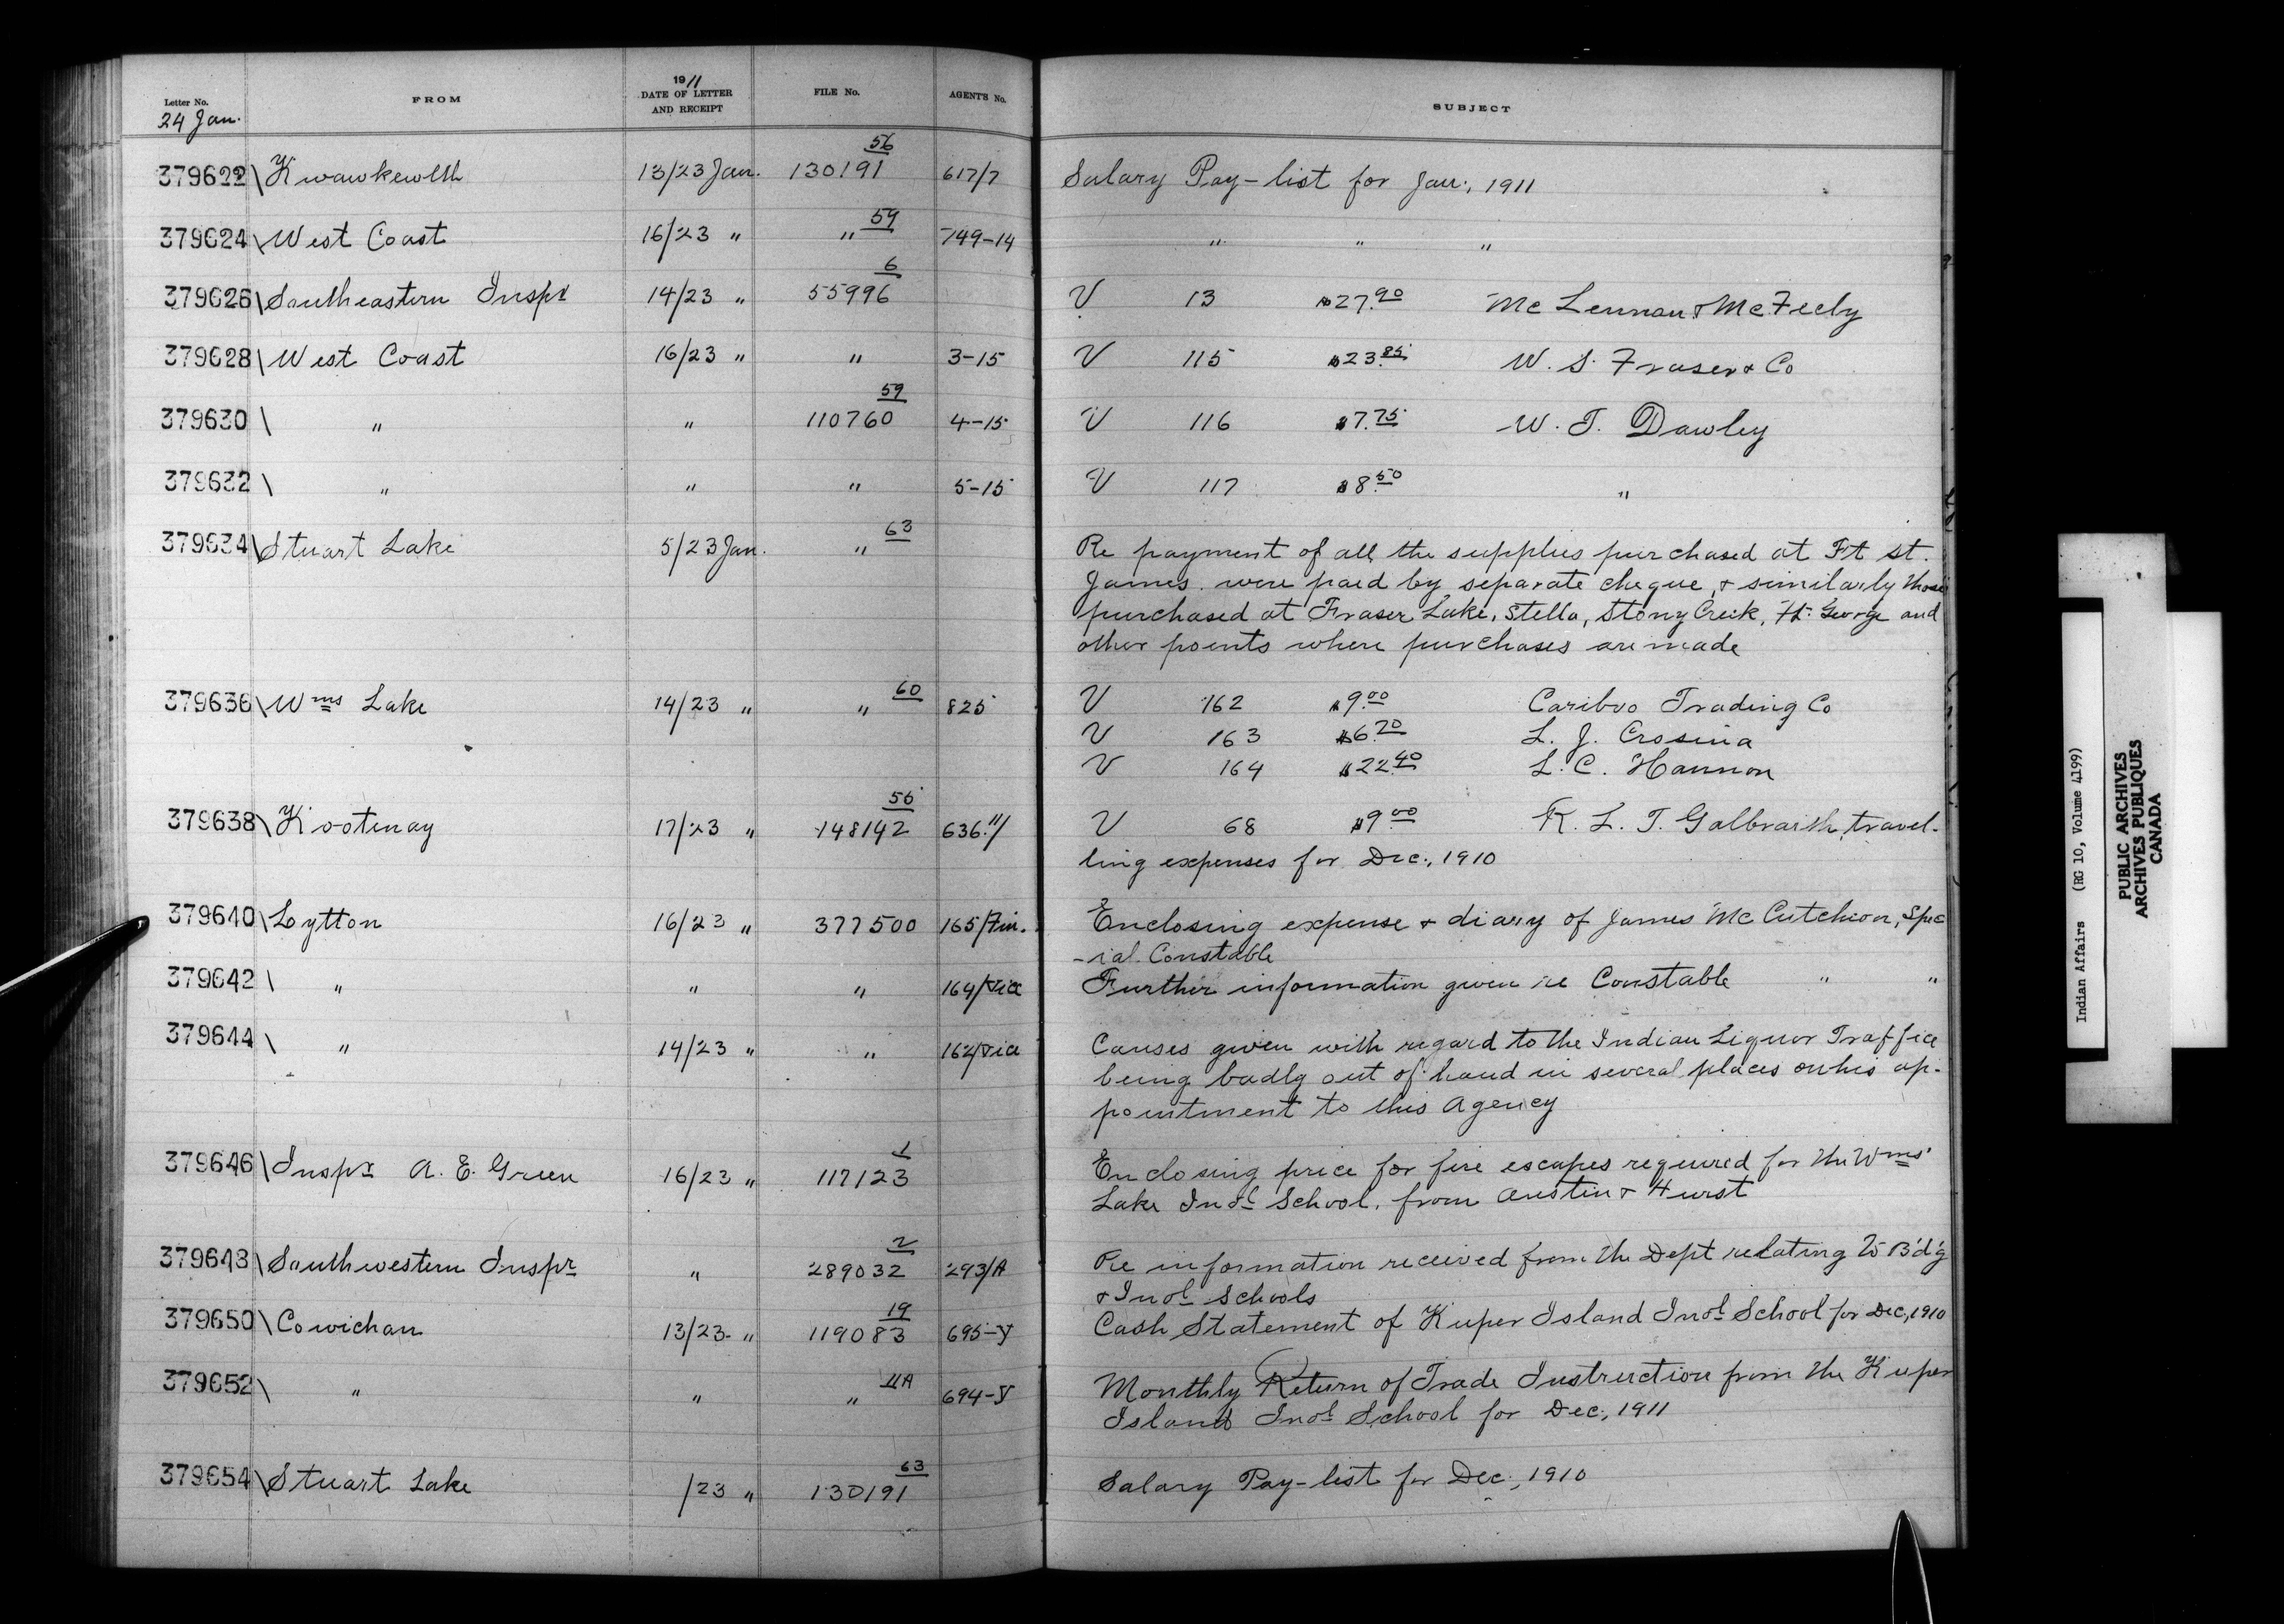 Letter No. FROM 1911 DATE OF LETTER AND RECEIPT FILE No. AGENT'S No. SUBJECT
24 Jan.
379622 \ Kwawkewlth 13/23 Jan. 130191 56 617/7 Salary Pay-list for Jan., 1911
379624 \ West Coast 16/23 " " 59 749-14 " " "
379626 \ Southeastern Inspr 14/23 " 55996 6 V 13 $27.90 McLennan & McFeely
379628 \ West Coast 16/23 " " 3-15 V 115 $23.85 W. S. Fraser & Co
379630 \ " " 110760 59 4-15 V 116 $7.75 W. T. Dawley
379632 \ " " " 5-15 V 117 $8.50 "
379634 \ Stuart Lake 5/23 Jan. " 63 Re payment of all the supplies purchased at Ft St.
James. were paid by separate cheque, & similarly those
purchased at Fraser Lake, Stella, Stony Creek, Ft. George and
other points where purchases are made
379636 \ Wms Lake 14/23 " " 60 825 V 162 $9.00 Cariboo Trading Co
V 163 $6.70 L. J. Crosina
V 164 $22.40 L. C. Hannon
379638 \ Kootenay 17/23 " 148142 56 636.11/ V 68 $9.00 R. L. T. Galbraith, travel-
ling expenses for Dec., 1910
379640 \ Lytton 16/23 " 377500 165/Fin. Enclosing expense & diary of James McCutcheon, Spec
-ial. Constable
379642 \ " " " 164/ Further information given re Constable " "
379644 \ " 14/23 " " 162/ Causes given with regard to the Indian Liquor Traffice
being badly out of hand in several places on his ap-
pointment to this Agency
379646 \ Inspr A. E. Green 16/23 " 117123 1 Enclosing price for fire escapes required for the Wms'
Lake Indl School, from Austin & Hurst
379648 \ Southwestern Inspr " 289032 2 293/A Re information received from the Dept relating to B'd'g
& Indl Schools
379650 \ Cowichan 13/23 " 119083 19 695-V Cash Statement of Kuper Island Indl School for Dec, 1910
379652 \ " " " 11A 694-V Monthly Return of Trade Instruction from the Kuper
Island Indl School for Dec., 1911
379654 \ Stuart Lake /23 " 130191 63 Salary Pay-list for Dec., 1910
Indian Affairs (RG 10, Volume 4199)
PUBLIC ARCHIVES
ARCHIVES PUBLIQUES
CANADA